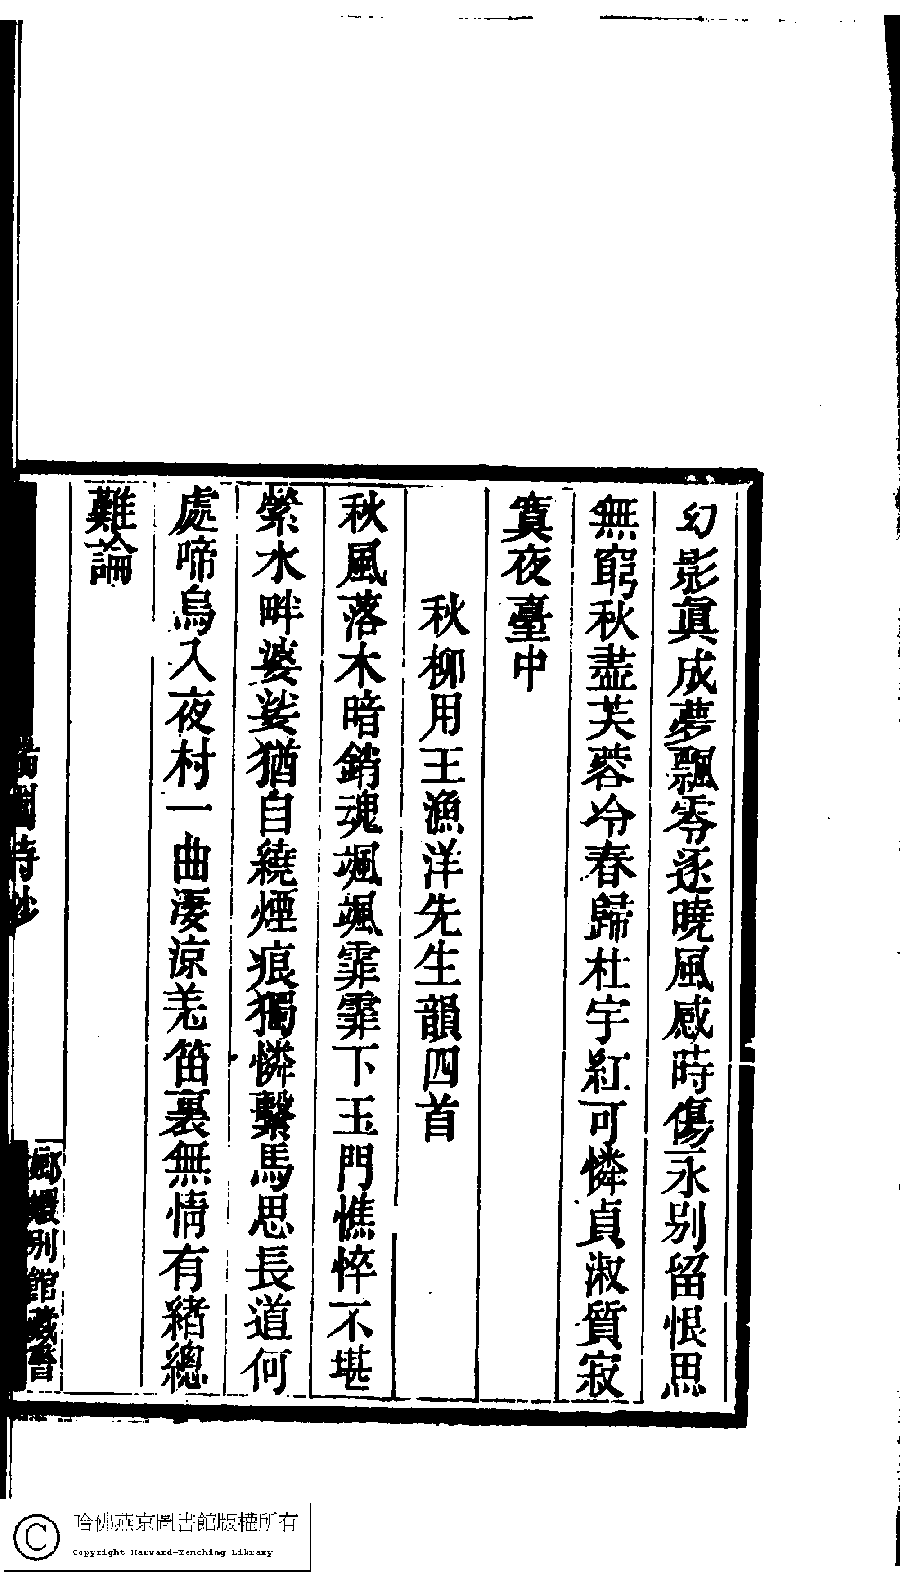 幻影眞成夢飄零逐曉風感時傷永别留恨思
無窮秋盡芙蓉冷春歸杜宇紅可憐貞淑質寂
寞夜臺中
秋柳用王漁洋先生韻四首
秋風落木暗銷魂颯颯霏霏下玉門憔悴不堪
縈水畔婆娑猶自繞煙痕獨憐繫馬思長道何
處啼烏入夜村一曲淒涼羌笛裏無情有緒總
難論
詩鈔
嫏嬛别館藏書
哈佛燕京圖書館版權所有
Copyright Harvard-Yenching Library